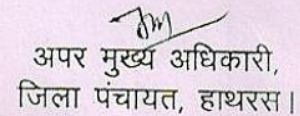 अपर मुख्य अधिकारी,
जिला पंचायत, हाथरस।